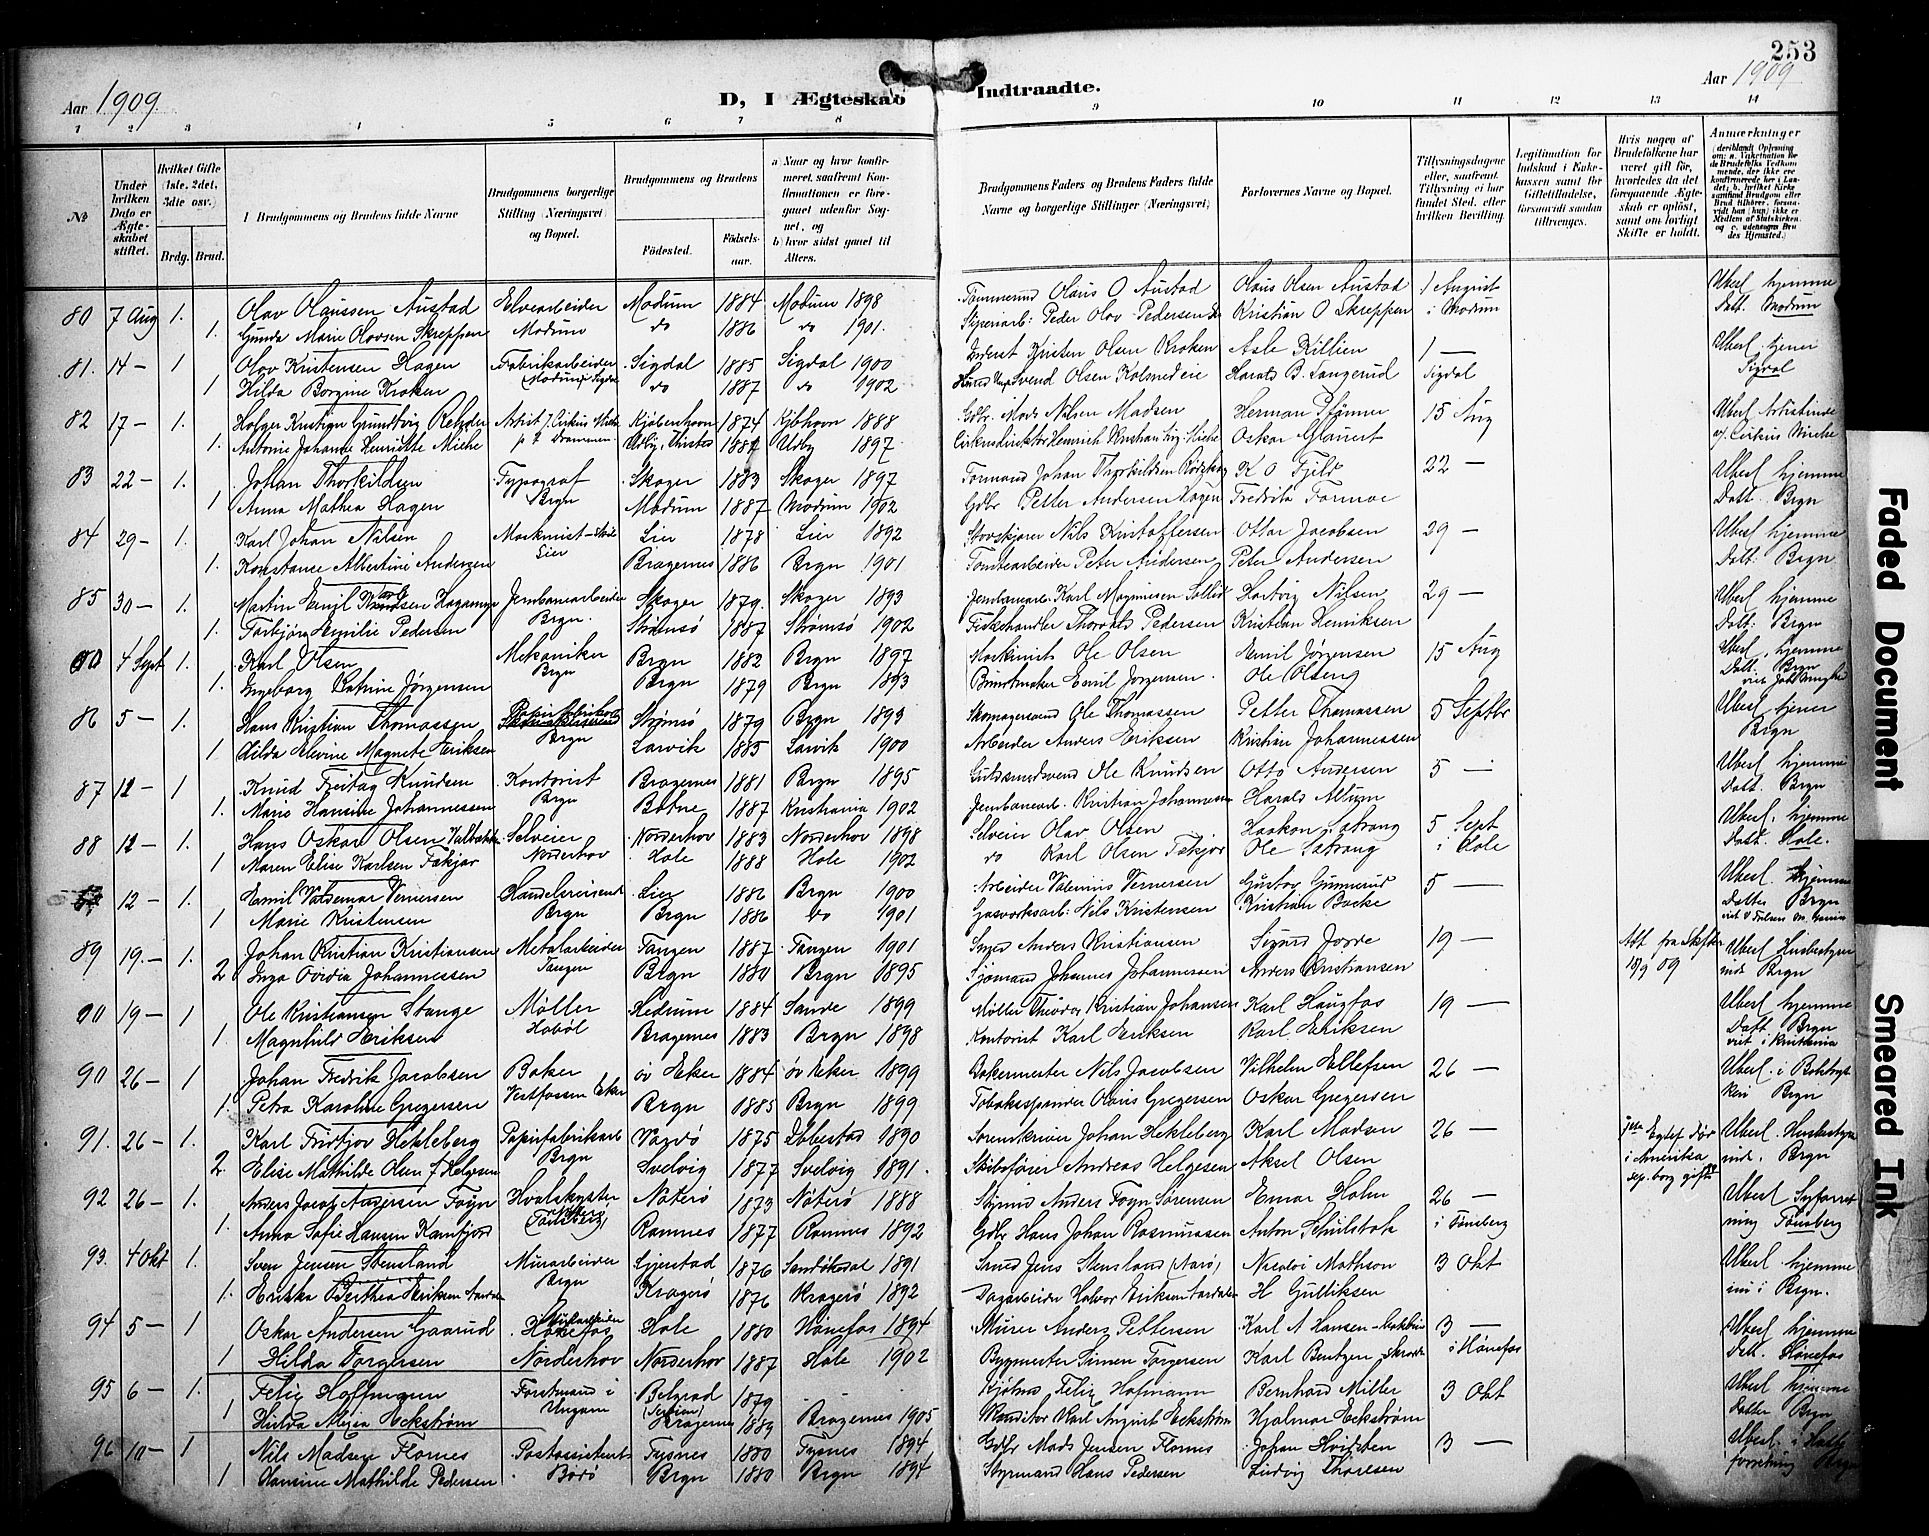 253
Aar 1909.
D, I Ægteskab Indtraadte.
Aar 1909
1 2 3 4 5 6 7 8 9 10 11 12 13 14
№
Under hvilken Dato er Ægteskabet stiftet.
Hvilket Gifte (1ste, 2det, 3die osv.)
Brdg. Brud.
Brudgommens og Brudens fulde Navne
Brudgommens borgerlige Stilling (Næringsvei) og Bopæl.
Brudgommens og Brudens
Fødested. Fødselsaar.
a) Naar og hvor konfirmeret, saafremt Konfirmationen er foregaaet udenfor Sognet, og
b) hvor sidst gaaet til Alters.
Brudgommens Faders og Brudens Faders fulde Navne og borgerlige Stillinger (Næringsvei)
Forlovernes Navne og Bopæl.
Tillysningsdagene eller, saafremt Tillysning ei har fundet Sted, efter hvilken Bevilling.
Legitimation for Indskud i Enkekassen samt for Giftetilladelse, forsaavidt saadan tiltrænges.
Hvis nogen af Brudefolkene har været gift før, hvorledes da det foregaaende Ægteskab er opløst, samt om lovligt Skifte er holdt.
Anmærkninger
80 7 Aug 1. Olav Olaussen Austad Elvearbeider Modum 1884 Modum 1898 Tømmermd Olaus O Austad Olaus Olsen Austad 1 August Uberl hjemme
1. Gunda Marie Olavsen Skreppen Modum do 1886 do 1901. Peder Olav Pedersen Kristian O Skreppen i Modum Datt. Modum
81. 14 — 1 Olav Kristensen Hagen Fabrikarbeider Sigdal 1885 Sigdal 1900 Inderst Kristen Olsen Kroken Asle Killien 1 — Uberl. tjener
1 Hilda Borgine Kroken do 1887 do 1902 Svend Olsen Kolmedeie Harald B. Langerud Sigdal Sigdal
82 17 — 1. Holger Kristian Grundtvig Rehder Artist Kjøbenhavn 1874 Kjbhavn 1888 Gdbr. Mads Nilsen Madsen Herman 15 Aug Uberl Artistinde
1. Antonie Johanne Henriette Miehe p t Drammen Udby, Thisted Udby 1897 Oskar Glauert v. Cirkus Miehe
83 22 — 1. Johan Thorkildsen Typograf Skoger 1883 Skoger 1897 Formand Johan Thorkildsen K O Fjeld 22 — Uberl hjemme
1 Anna Mathea Hagen Brgn Modum 1887 Modum 1902 Gdbr Petter Andersen Hagen Fredrik Formoe Datt. Brgn
84 29 — 1. Karl Johan Nilsen Lier 1878 Lier 1892 Nils Kristoffersen Ottar Jacobsen 29 — Uberl hjemme
1. Konstanse Albertine Andersen Lier Bragernes 1886 Brgn 1901 Tomtearbeider Peter Andersen Peter Andersen Datt: Brgn
85 30 — 1. Martin Emil Hagamyr Jernbanearbeider Skoger 1879. Skoger 1893 Karl Magnusen Hartvig Nilsen 29 — Uberl hjemme
1. Torbjør Emilie Pedersen Brgn. Strømsø 1887 Strømsø 1902 Fiskehandler Thorvald Pedersen Kristian Henriksen Datt: Brgn
4 Sept 1. Karl Olsen Mekaniker Brgn 1882 Brgn 1897 Maskinist Ole Olsen Emil Jørgensen 15 Aug Uberl. hjemme
1. Ingeborg Katrine Jørgensen Brgn Brgn 1879 Brgn 1893 Emil Jørgensen. Ole Olsen Datt. Brgn
86 5 — 1. Hans Kristian Thomassen Brgn Strømsø 1879 Brgn 1893 Skomagersvend Ole Thomassen Petter Thomassen 5 Septbr Uberl tjener
1 Hilda Elevine Magnete Eriksen Larvik 1885 Larvik 1900 Arbeider Anders Eriksen Kristian Johannessen Brgn
87 12 — 1 Knud Freitag Knudsen Kontorist Bragernes 1881 Brgn 1895 Guldsmedsvend Ole Knudsen Otto Andersen 5 — Uberl hjemme
1. Marie Hansine Johannessen Brgn Botne 1887 Kristiania 1902 Jernbanearb. Kristian Johannessen Harald Allum Datt. Brgn
88 12 — 1. Hans Oskar Olsen Selveier Norderhov 1883 Norderhov 1898 Selveier Olav Olsen Haakon Satrang 5 Sept Uberl. hjemme
1 Maren Elise Karlsen Fekjær Norderhov Hole 1888 Hole 1902 do Karl Olsen Fekjær Ole Satrang i Hole Datt. Hole.
12 — 1. Emil Valdemar Vernersen Handelsreisende Lier 1886 Brgn 1900 Arbeider Valennius Vernersen Gustav Gunnerud 5 — Uberl. hjemme
1 Marie Kristensen Brgn Brgn 1886 do 1901 Gasverksarb: Nils Kristensen Kristian Backe Datter Brgn
89 19. — 1. Johan Kristian Kristiansen Metalarbeider Tangen 1887 Tangen 1901 Smed Anders Kristiansen Sigurd 19 — Att fra Skifte Uberl Husbestyrer
2 Inga Ovidia Johannessen Tangen Brgn 1880 Brgn 1895 Sjømand Johannes Johannessen Anders Kristiansen 18/9 09 inde Brgn
90 19 — 1 Ole Kristiansen Stange Møller Hedrum 1884 Sande 1899 Møller Theodor Kristian Johansen Karl Haugfos 19 — Uberl hjemme
1. Magnhild Eriksen Hobøl Bragernes 1883 Brgn 1898 Kontorist Karl Eriksen Karl Eriksen Datt. Brgn
90 26 — 1 Johan Fredrik Jacobsen Baker øv Eker 1884 øv Eker 1899 Bakermester Nils Jacobsen Vilhelm Ellefsen 26 — Uberl. i
1. Petra Karoline Gregersen Vestfossen Eker Brgn 1885 Brgn 1899 Tobakspinder Olaus Gregersen Oskar Gregersen Brgn
91. 26 — 1. Karl Fridtjov Hekleberg Papirfabrikarb 1875 Ibbestad 1890 Sorenskriver Johan Hekleberg Karl Madsen 26 — Uberl. Husbestyrer
2. Elise Mathilde Olsen f. Helgesen Brgn Svelvig 1877 Svelvig 1891. Skibsfører Andreas Helgesen Aksel Olsen i Amerika inde. Brgn
92 26 — 1. Anders Jacob Andersen Foyn Hvalskytter Nøterø 1873 Nøterø 1888 Anders Foyn Sørensen Einar Holm 26 — Uberl
1. Anna Sofie Hansen Kamfjord Tønsberg Ramnes 1877 Ramnes 1892 Gdbr Hans Johan Rasmussen Anton Schulstok i Tønsberg Tønsberg
93. 4 Okt 1. Sven Jensen Stensland Murarbeider Gjerstad 1876 Sandøkedal 1891 Smed Jens Stensland Nicolai Mathson 3 Okt Uberl. hjemme
1. Erikka Berthea Eriksen Brgn Kragerø 1876 Kragerø 1892 Dagarbeider Halvor Eriksen H Gulliksen Brgn.
94 5 — 1 Oskar Andersen Gaarud Hønefos Hole 1880 Hønefos 1894 Murer Anders Pettersen Karl A Hansen 3 — Uberl hjemme
1 Hilda Torgersen Norderhov Norderhov 1887 Hole 1902 Bygmester Simen Torgersen Karl Bentzen i Hønefos Datt. Hønefos
95 6 — 1. Felix Hofmann Forstmand i Belgrad 1879 - Felix Hofmann Bernhard Miller 3 Okt Uberl hjemme
1 Hulda Alexia Eckstrøm Ungarn (Serbien) Bragernes 1889 Bragernes 1905 Konditor Karl August Eckstrøm Hjalmar Eckstrøm Datter Brgn
96 10 — 1 Nils Madsen Flornes Postassistent Tysnes 1880 Tysnes 1894 Gdbr Mads Jensen Flornes Johan Hvidsten 3 — Uberl.
1 Hansine Mathilde Pedersen Bodø Brgn 1880 Brgn 1894 Styrmand Hans Pedersen Ludvig Thoresen forretning Brgn
Faded Document
Smeared Ink